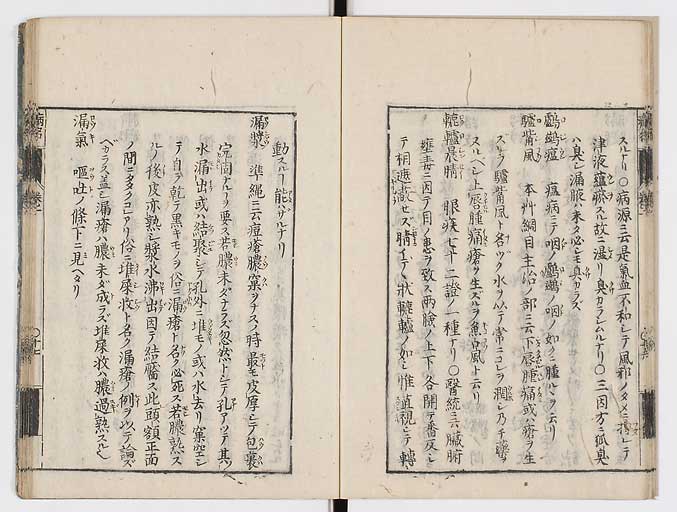 スルナリ〇病源ニ云是氣血不和シテ風邪ノタメニ搏レテ
津液蘊瘀スル故ニ濕リ臭カラシムルナリ〇三因方ニ狐臭
ハ臭シ漏腋ハ未タ必シモ臭カラス
鸕鷀瘟 瘟病ニテ咽ノ鸕鷀ノ咽ノ如クニ腫ルヽヲ云リ
驢觜風 本艸綱目主治ノ部ニ云下唇腫痛或ハ瘡ヲ生
スルヲ驢觜風ト名ヅク水ヲ以テ常ニコレヲ潤シ乃チ
スルヘシ上唇腫痛瘡ヲ生スルヲ魚口風ト云リ
轆轤晨睛 眼疾七十二證ノ一種ナリ〇醫統云臓腑
壅毒ニ因テ目ノ患ヲ致ス両瞼ノ上下各開テ番反シ
テ相遮蔽セズ睛イデヽ状轆轤ノ如シ惟直視シテ轉
動スルヿ能ハザルナリ
漏漿 準繩ニ云痘瘡膿窠ヲナスノ時最モ皮厚シテ包裹
完固ナルヿヲ要ス若膿未ダナラズ忽然トシテ孔アツテ其
水漏出或ハ結聚シテ孔外ニ堆モノ或ハ水去リ窠空シ
テ自ラ乾テ黒キモノヲ俗ニ漏瘡ト名ク必死ス若膿熟ス
ルノ後皮亦熟シ漿水沸出因テ結靨ス此頭額正面
ノ間ニ多クコレアリ俗ニ堆屎收ト名ク漏瘡ノ例ヲ以テ論ズ
ベカラス蓋シ漏瘡ハ膿未ダ成ラズ堆屎收ハ膿過熟スル
漏氣 嘔吐ノ條下ニ見ヘタリ